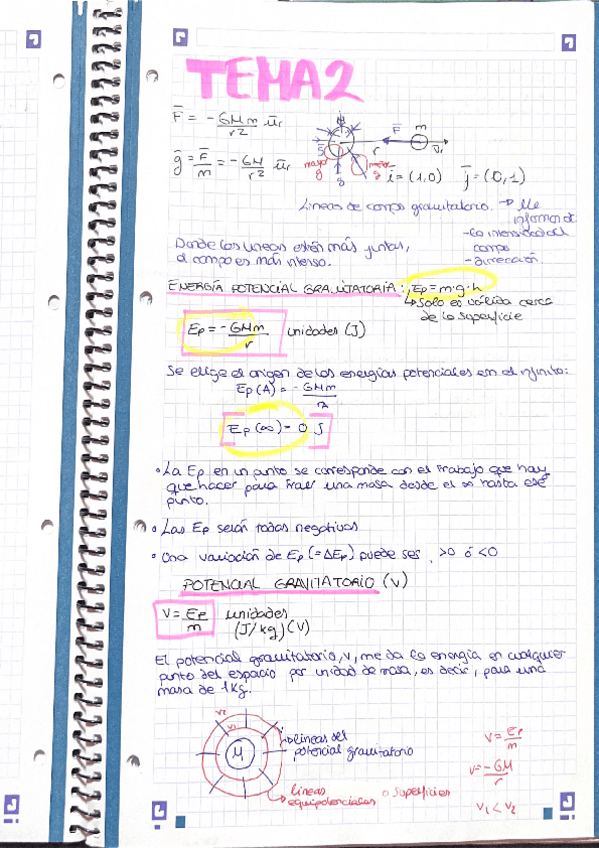 TEMA2
F̅ = -GMm/r² u̅r
g̅ = F̅/m = -GM/r² u̅r
M F̅ m
r u̅r
mayor g
g
i̅ = (1,0) j̅ = (0,1)
Lineas de campo gravitatorio. → Me informan de
- la intensidad del campo
- dirección
Donde las lineas estén más juntas,
el campo es más intenso.
ENERGÍA POTENCIAL GRAVITATORIA: Ep = m·g·h
↳ Solo es válida cerca
de la superficie
Ep = -GMm/r unidades (J)
Se elige el origen de las energías potenciales en el infinito:
Ep(A) = -GMm/rA
Ep(∞) = 0 J
• La Ep en un punto se corresponde con el trabajo que hay
que hacer para traer una masa desde el ∞ hasta ese
punto.
• Las Ep serán todas negativas
• Una variación de Ep (=ΔEp) puede ser >0 ó <0
POTENCIAL GRAVITATORIO (V)
V = Ep/m unidades
(J/kg) (V)
El potencial gravitatorio, V, me da la energía en cualquier
punto del espacio por unidad de masa, es decir, para una
masa de 1kg.
V2
V1
M
→ lineas del
potencial gravitatorio
→ lineas o superficies
equipotenciales
V = Ep/m
V = -GM/r
V1 < V2